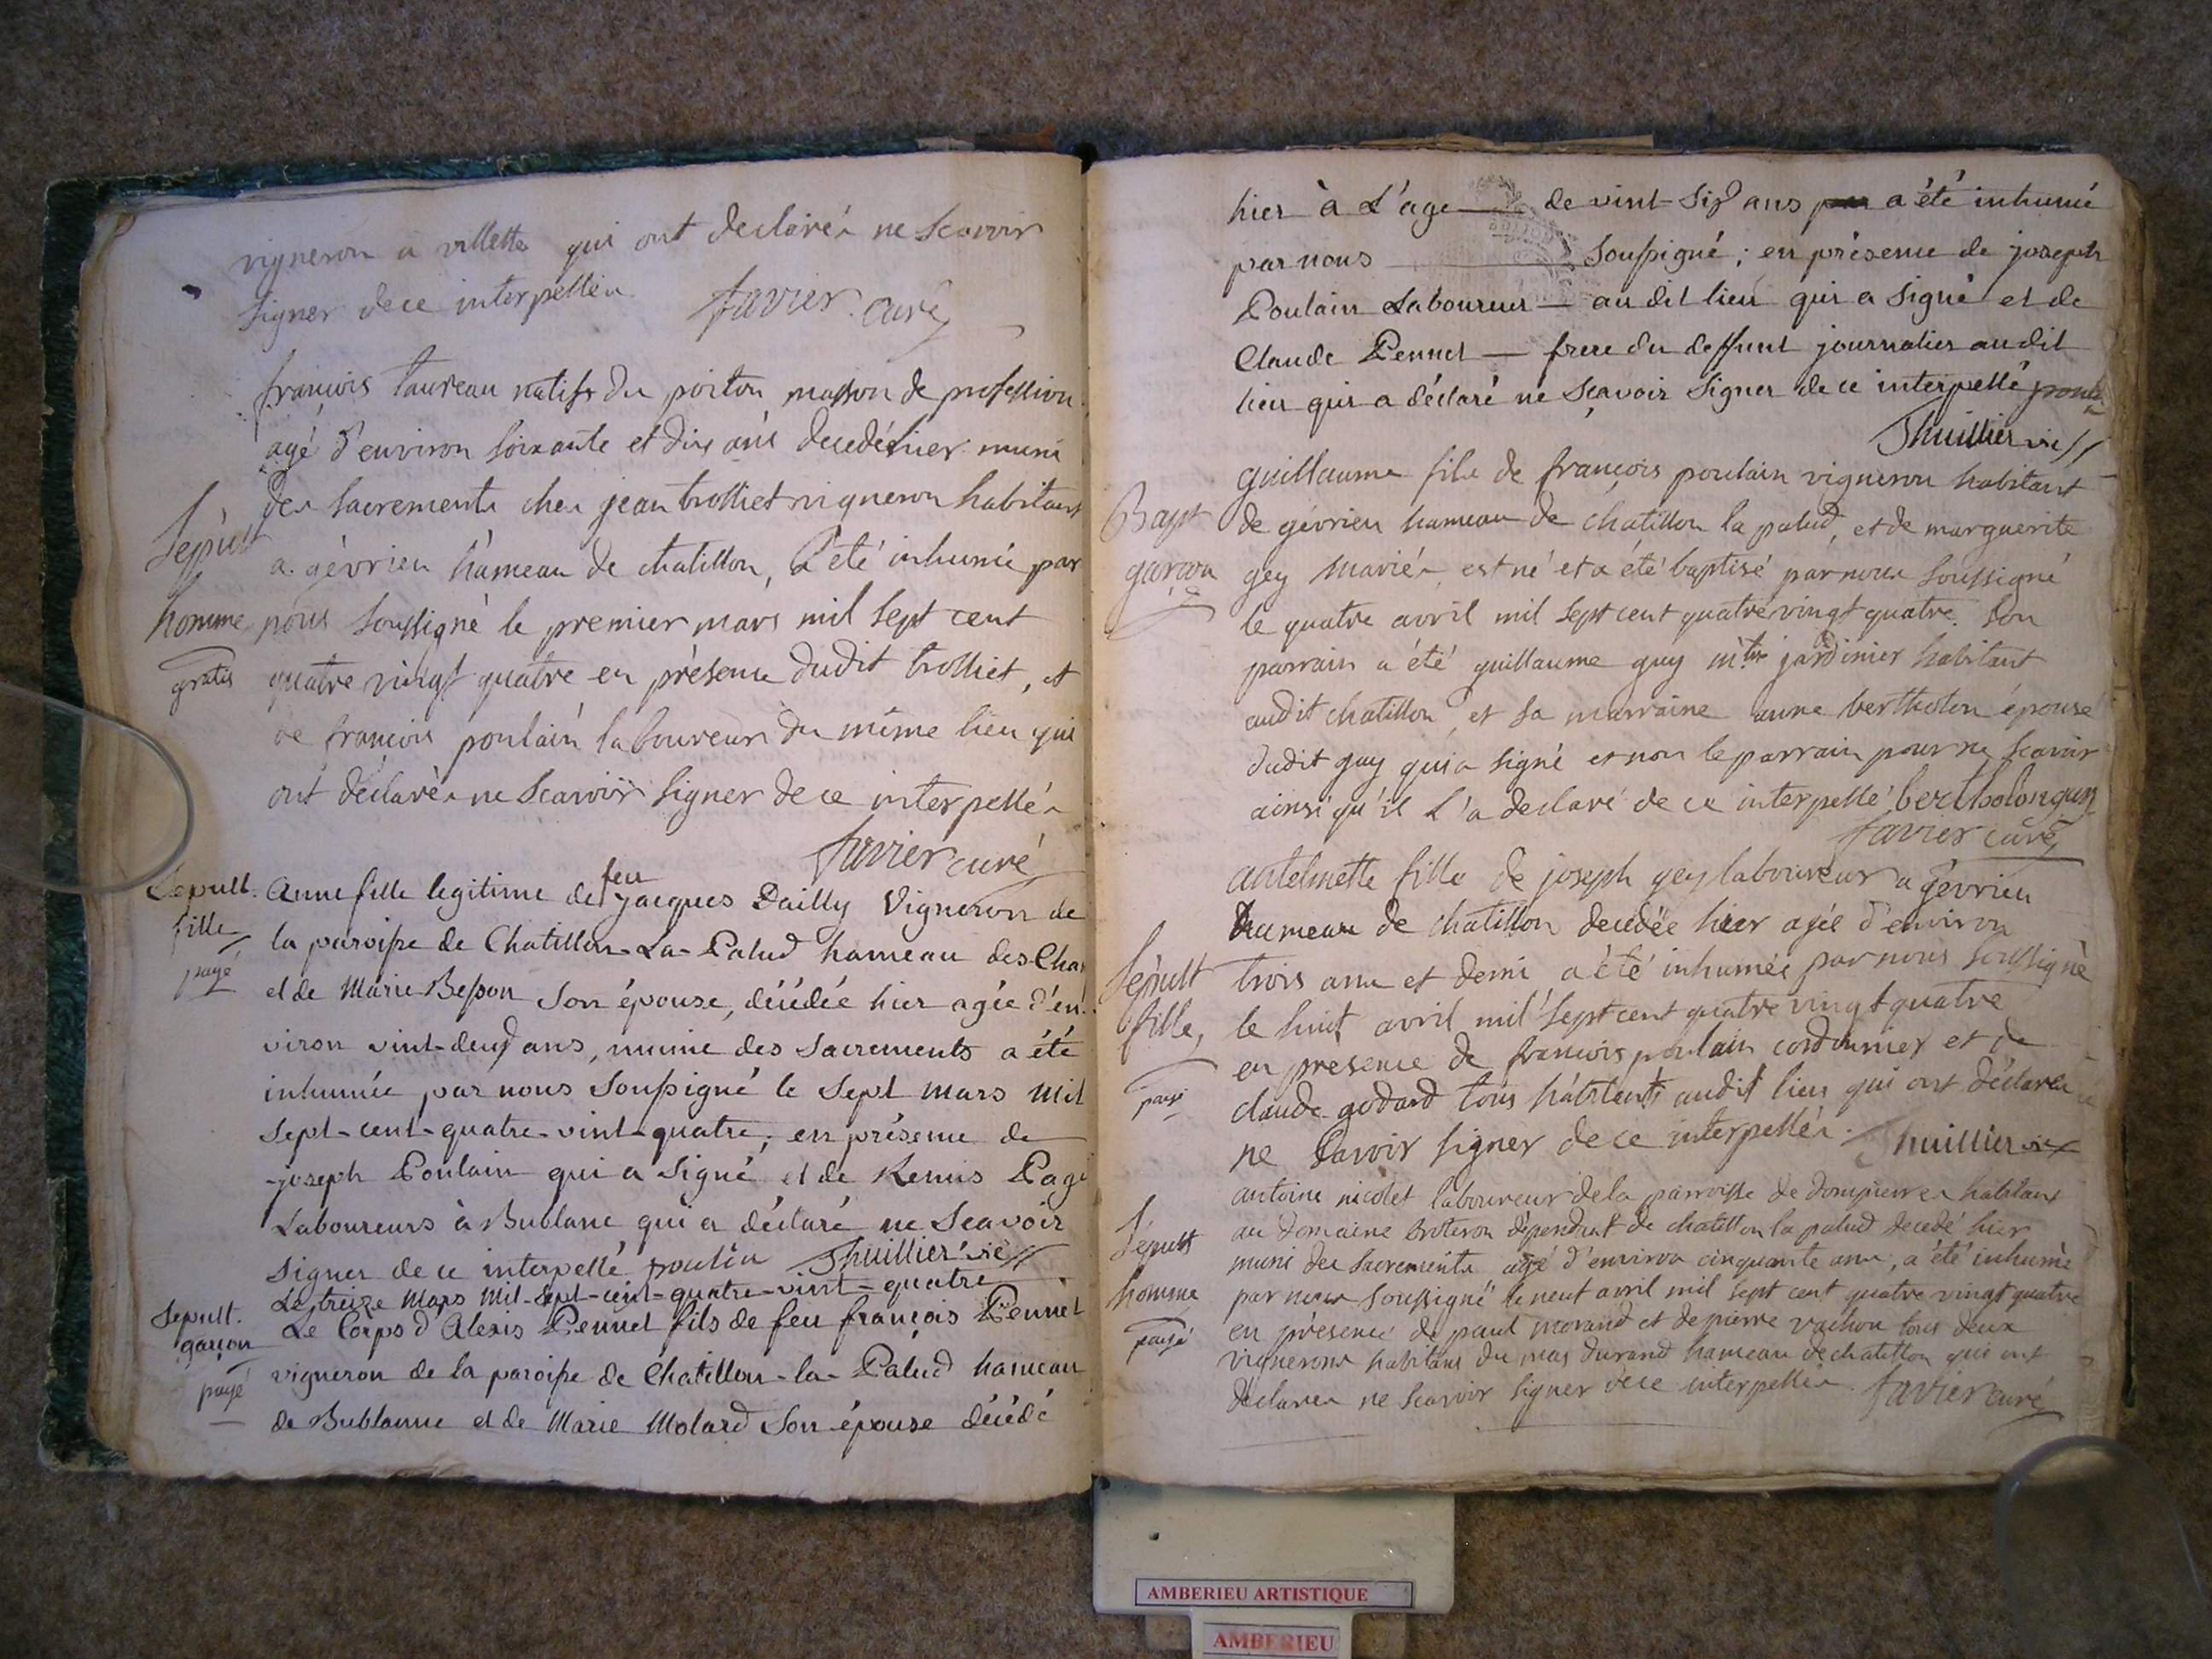 vigneron a villette qui ont declarés ne scavoir
signer de ce interpellés. favier curé
françois taureau natifs du poitou masson de profession
agé d'environ soixante et dix ans decedé hier muni
des sacrements ches jean trolliet vigneron habitant
Sepult
a gévrieu hameau de chatillon, a été inhumé par
homme
nous soussigné le premier mars mil sept cent
gratis
quatre vingt quatre en présence dudit trolliet, et
de francois poulain laboureur du même lieu qui
ont déclarés ne scavoir signer de ce interpellés
favier curé
Sepult.
fille
payé
Anne fille legitime de feu jacques Dailly Vigneron de
la paroisse de Chatillon-La-Palud hameau des Cha
et de Marie Besson son épouse, décédée hier agée d'en-
viron vint-deux ans, munie des Sacrements a été
inhumée par nous soussigné le Sept Mars Mil
Sept-cent-quatre-vint-quatre; en présence de
joseph Poulain qui a signé et de Remis Pagi
Laboureurs à Bublane qui a déclaré ne Scavoir
signer de ce interpellé poulin Thuillier vic
Le treize Mars Mil-Sept-cent-quatre-vint-quatre
Sepult.
garçon
payé
Le Corps d'Alexis Pennet fils de feu françois Pennet
vigneron de la paroisse de Chatillon-la-Palud hameau
de Bublanne et de Marie Molard son épouse décédé
hier à l'age de vint-six ans a été inhumé
par nous soussigné; en présence de joseph
Poulain Laboureur au dit lieu qui a signé et de
Claude Pennet frere du deffunt journalier au dit
lieu qui a déclaré ne sçavoir signer de ce interpellé
Thuillier vic
Bapt
garcon
guillaume fils de françois poulain vigneron habitant
de gévrieu hameau de chatillon la palud, et de marguerite
gey mariés, est né et a été baptisé par nous soussigné
le quatre avril mil sept cent quatre vingt quatre. son
parrain a été guillaume guy jardinier habitant
audit chatillon, et sa marraine anne bertholon épouse
dudit guy qui a signé et non le parrain pour ne scavoir
ainsi qu'il l'a declaré de ce interpellé
favier curé
Sépult
fille
payé
antelmette fille de joseph gey laboureur a gevrieu
hameau de chatillon decedée hier agée d'environ
trois ans et demi a été inhumée par nous soussigné
le huit avril mil sept cent quatre vingt quatre
en presence de francois poulain cordonnier et de
claude godard tous habitants audit lieu qui ont déclarés
ne savoir signer de ce interpellés. Thuillier vic
Sépult
homme
payé
antoine nicolet laboureur de la parroisse de dompierre habitant
au domaine broteron dépendant de chatillon la palud decedé hier
muni des sacrements agé d'environ cinquante ans, a été inhumé
par nous soussigné le neuf avril mil sept cent quatre vingt quatre
en présence de paul morand et de pierre vachon tous deux
vignerons habitans du mas durand hameau de chatillon qui ont
déclarés ne scavoir signer de ce interpellés favier curé
AMBERIEU ARTISTIQUE
AMBERIEU